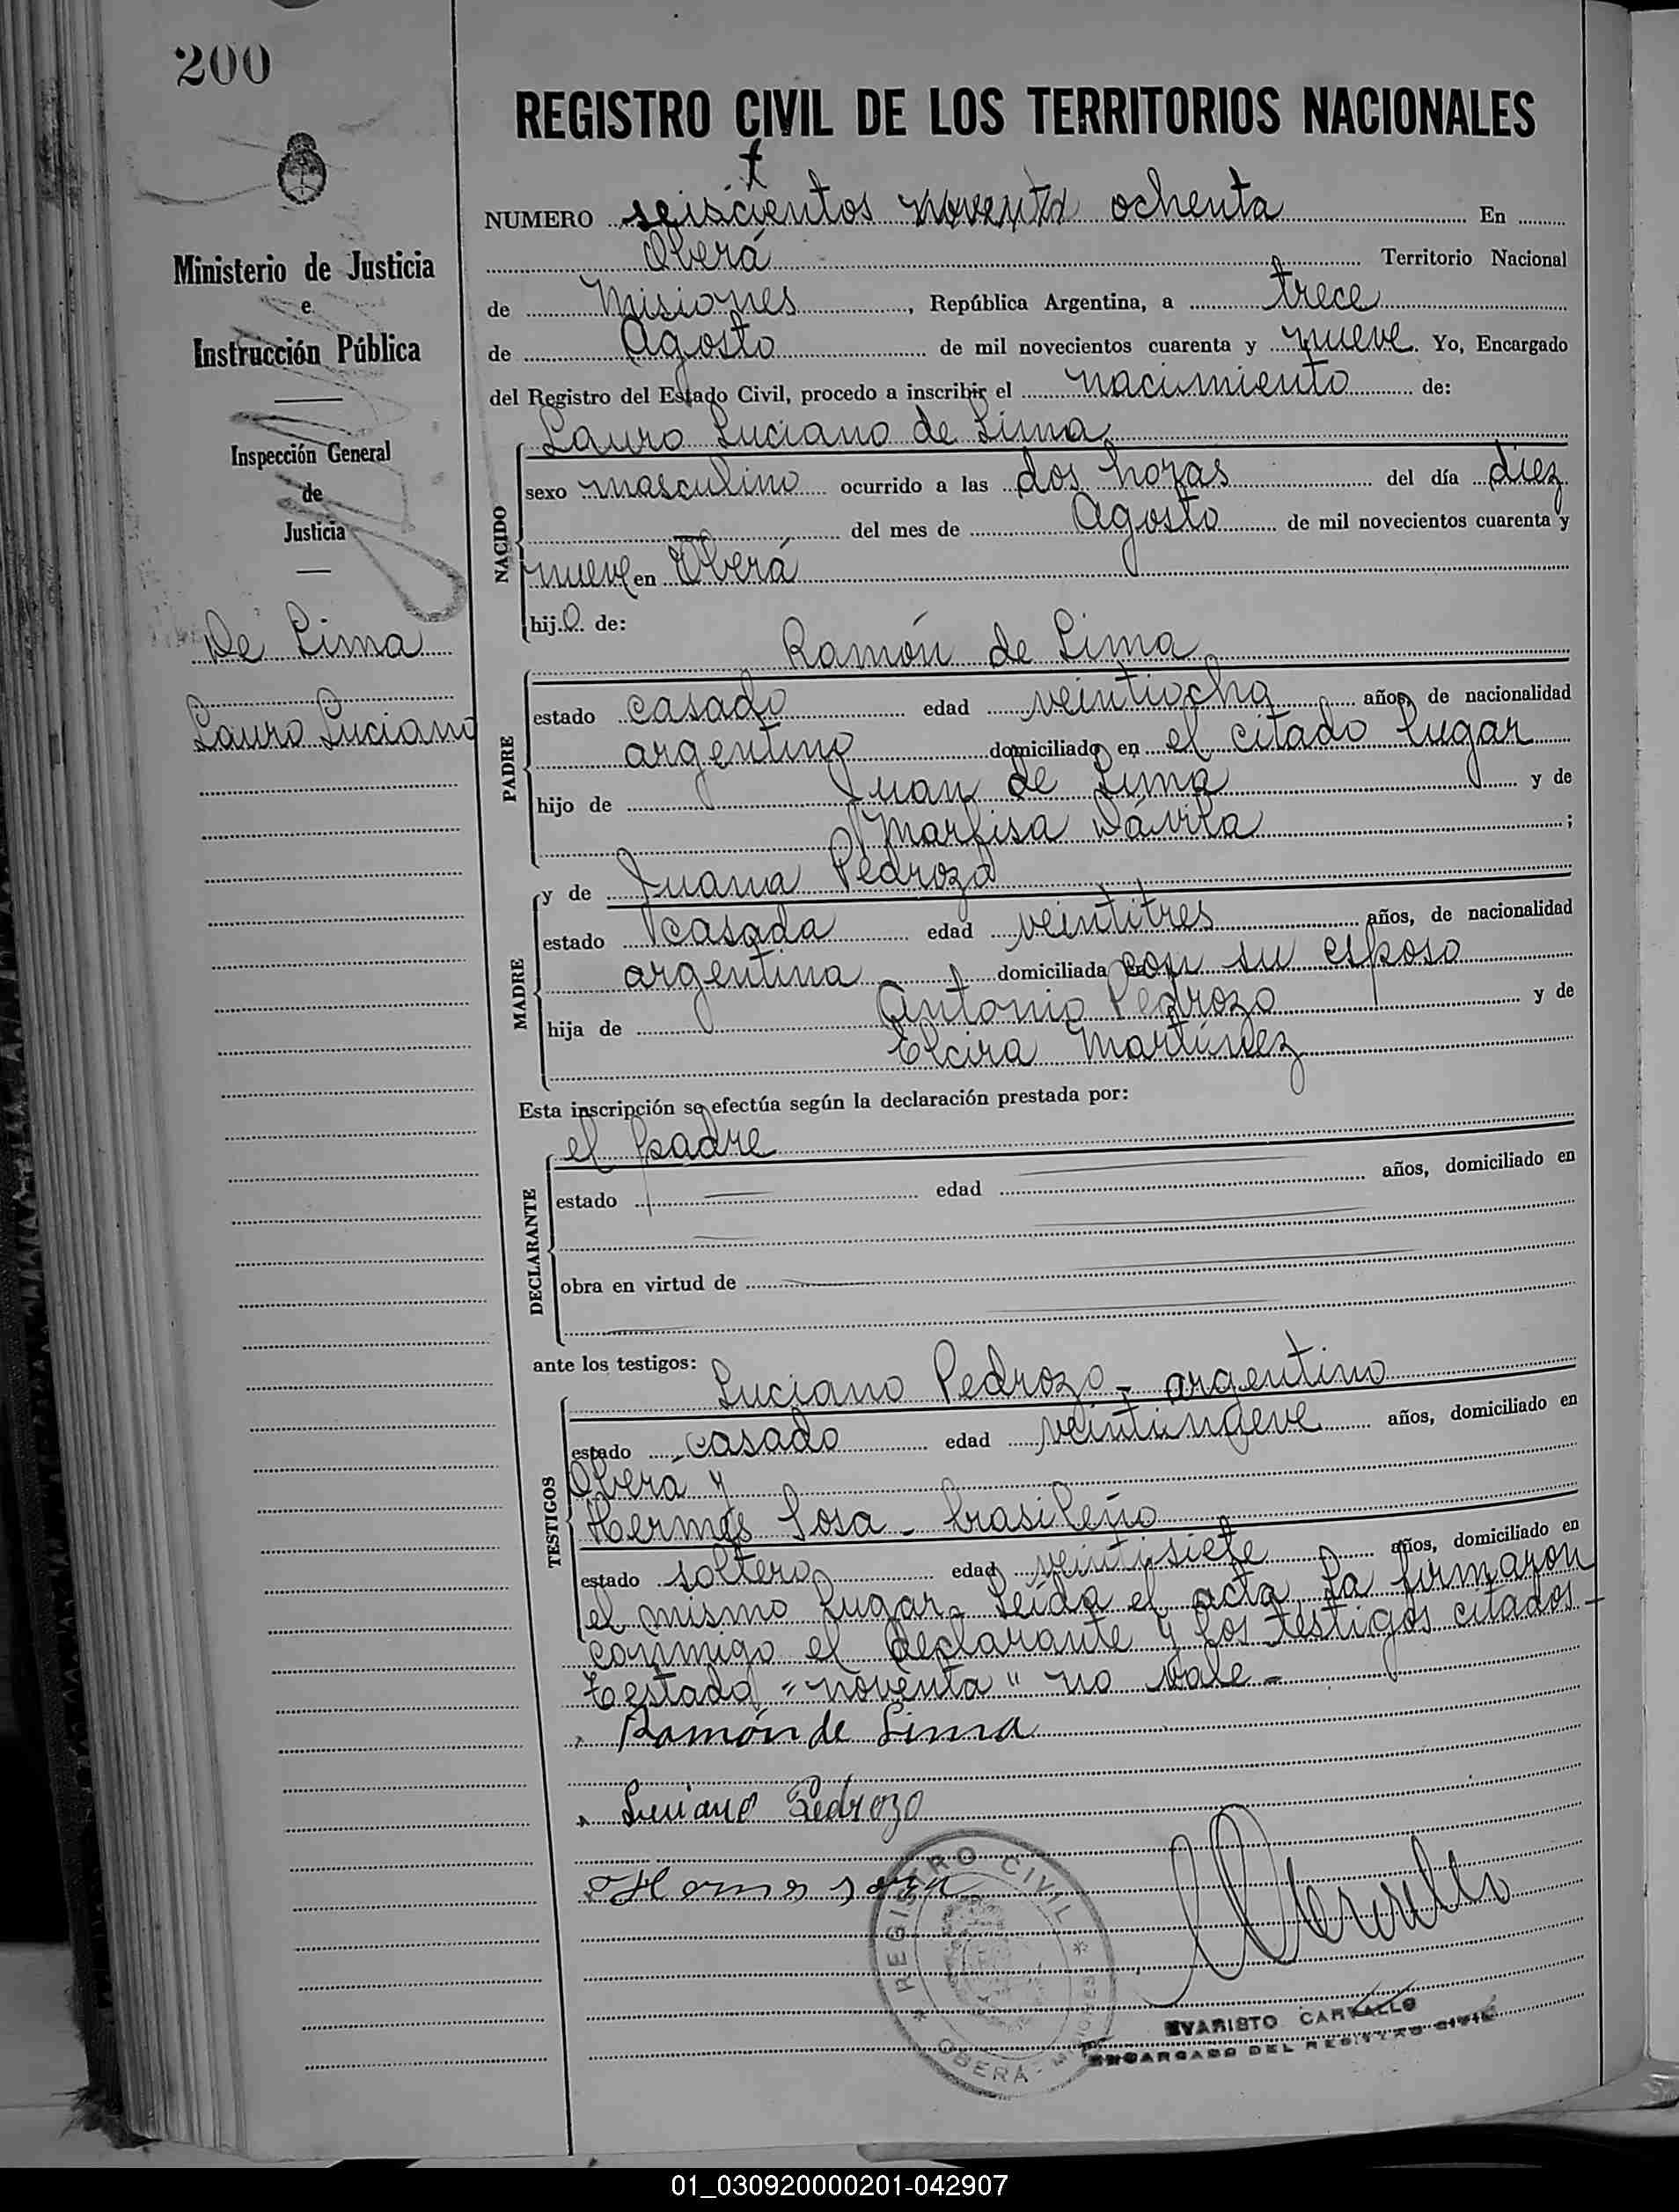 200
REGISTRO CIVIL DE LOS TERRITORIOS NACIONALES
NUMERO seiscientos noventa ochenta En
Oberá Territorio Nacional
de Misiones, República Argentina, a trece
de Agosto de mil novecientos cuarenta y nueve. Yo, Encargado
del Registro del Estado Civil, procedo a inscribir el nacimiento de:
Ministerio de Justicia
e
Instrucción Pública
Inspección General
de
Justicia
De Lima
Lauro Luciano
NACIDO
Lauro Luciano de Lima
sexo masculino ocurrido a las dos horas del día diez
del mes de Agosto de mil novecientos cuarenta y
nueve en Oberá
hijo de:
PADRE
Ramón de Lima
estado casado edad veintiocho años, de nacionalidad
argentino domiciliado en el citado lugar
hijo de Juan de Lima y de
Marfisa Dávila ;
MADRE
y de Juana Pedrozo
estado casada edad veintitres años, de nacionalidad
argentina domiciliada con su esposo
hija de Antonio Pedrozo y de
Elcira Martínez
Esta inscripción se efectúa según la declaración prestada por:
el padre
DECLARANTE
estado edad años, domiciliado en
obra en virtud de
ante los testigos:
TESTIGOS
Luciano Pedrozo - argentino
estado casado edad veintinueve años, domiciliado en
Oberá y
Hermes Sosa - brasileño
estado soltero edad veintisiete años, domiciliado en
el mismo lugar. Leída el acta, la firmaron
conmigo el declarante y los testigos citados -
Testado "noventa" no vale -
Ramón de Lima
Luciano Pedrozo
Hermes Sosa
REGISTRO CIVIL
OBERÁ - MISIONES
EVARISTO CARVALLO
ENCARGADO DEL REGISTRO CIVIL
01_030920000201-042907